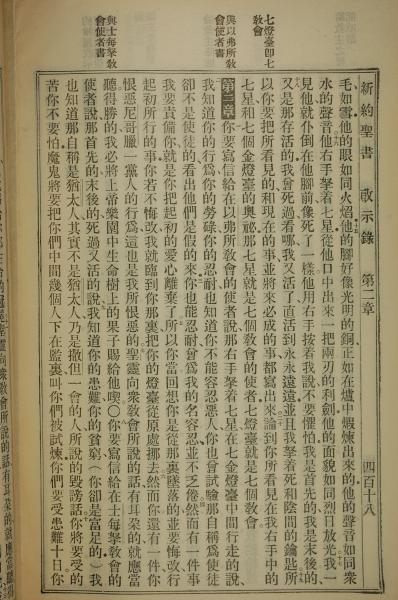 新約聖書 啟示錄 第二章 四百十八
毛如雪他的眼如同火焰他的腳好像光明的銅正如在爐中煅煉出來的他的聲音如同衆
水的聲音他右手拏着七星從他口中出來一把兩刃的利劍他的面貌如同烈日放光我一
見他就仆倒在他腳前像死了一樣他用右手按着我說不要懼怕我是首先的我是末後的
又是那存活的我曾死過看哪我又活了直活到永永遠遠並且我拏着死和陰間的鑰匙所
以你要把所看見的和現在的事並將來必成的事都寫出來論到你所看見在我右手中的
七星和七個金燈臺的奧祕那七星就是七個敎會的使者七燈臺就是七個敎會
七燈臺卽七
敎會
第二章 你要寫信給在以弗所敎會的使者說那右手拏着七星在七金燈臺中間行走的說
與以弗所敎
會使者書
我知道你的行爲你的勞碌你的忍耐也知道你不能容忍惡人你也曾試驗那自稱爲使徒
卻不是使徒的看出他們是假的來你也能忍耐曾爲我的名容忍並不乏倦然而有一件事
我要責備你就是你把起初的愛心離棄了所以你當回想你是從那裏墜落的並要悔改行
起初所行的事你若不悔改我就臨到你那裏把你的燈臺從原處挪去然而你還有一件你
恨惡尼哥拉一黨人的行爲這也是我所恨惡的聖靈向衆敎會所說的話有耳朶的就應當
聽得勝的我必將上帝樂園中生命樹上的果子賜給他喫〇你要寫信給在士每拏敎會的
與士每拏敎
會使者書
使者說那首先的末後的死過又活的說我知道你的患難你的貧窮（你卻是富足的）我
也知道那自稱是猶太人其實不是猶太人乃是撒但一會的人所說的毀謗話你將要受的
苦你不要怕魔鬼將要把你們中間幾個人下在監裏叫你們被試煉你們要受患難十日你